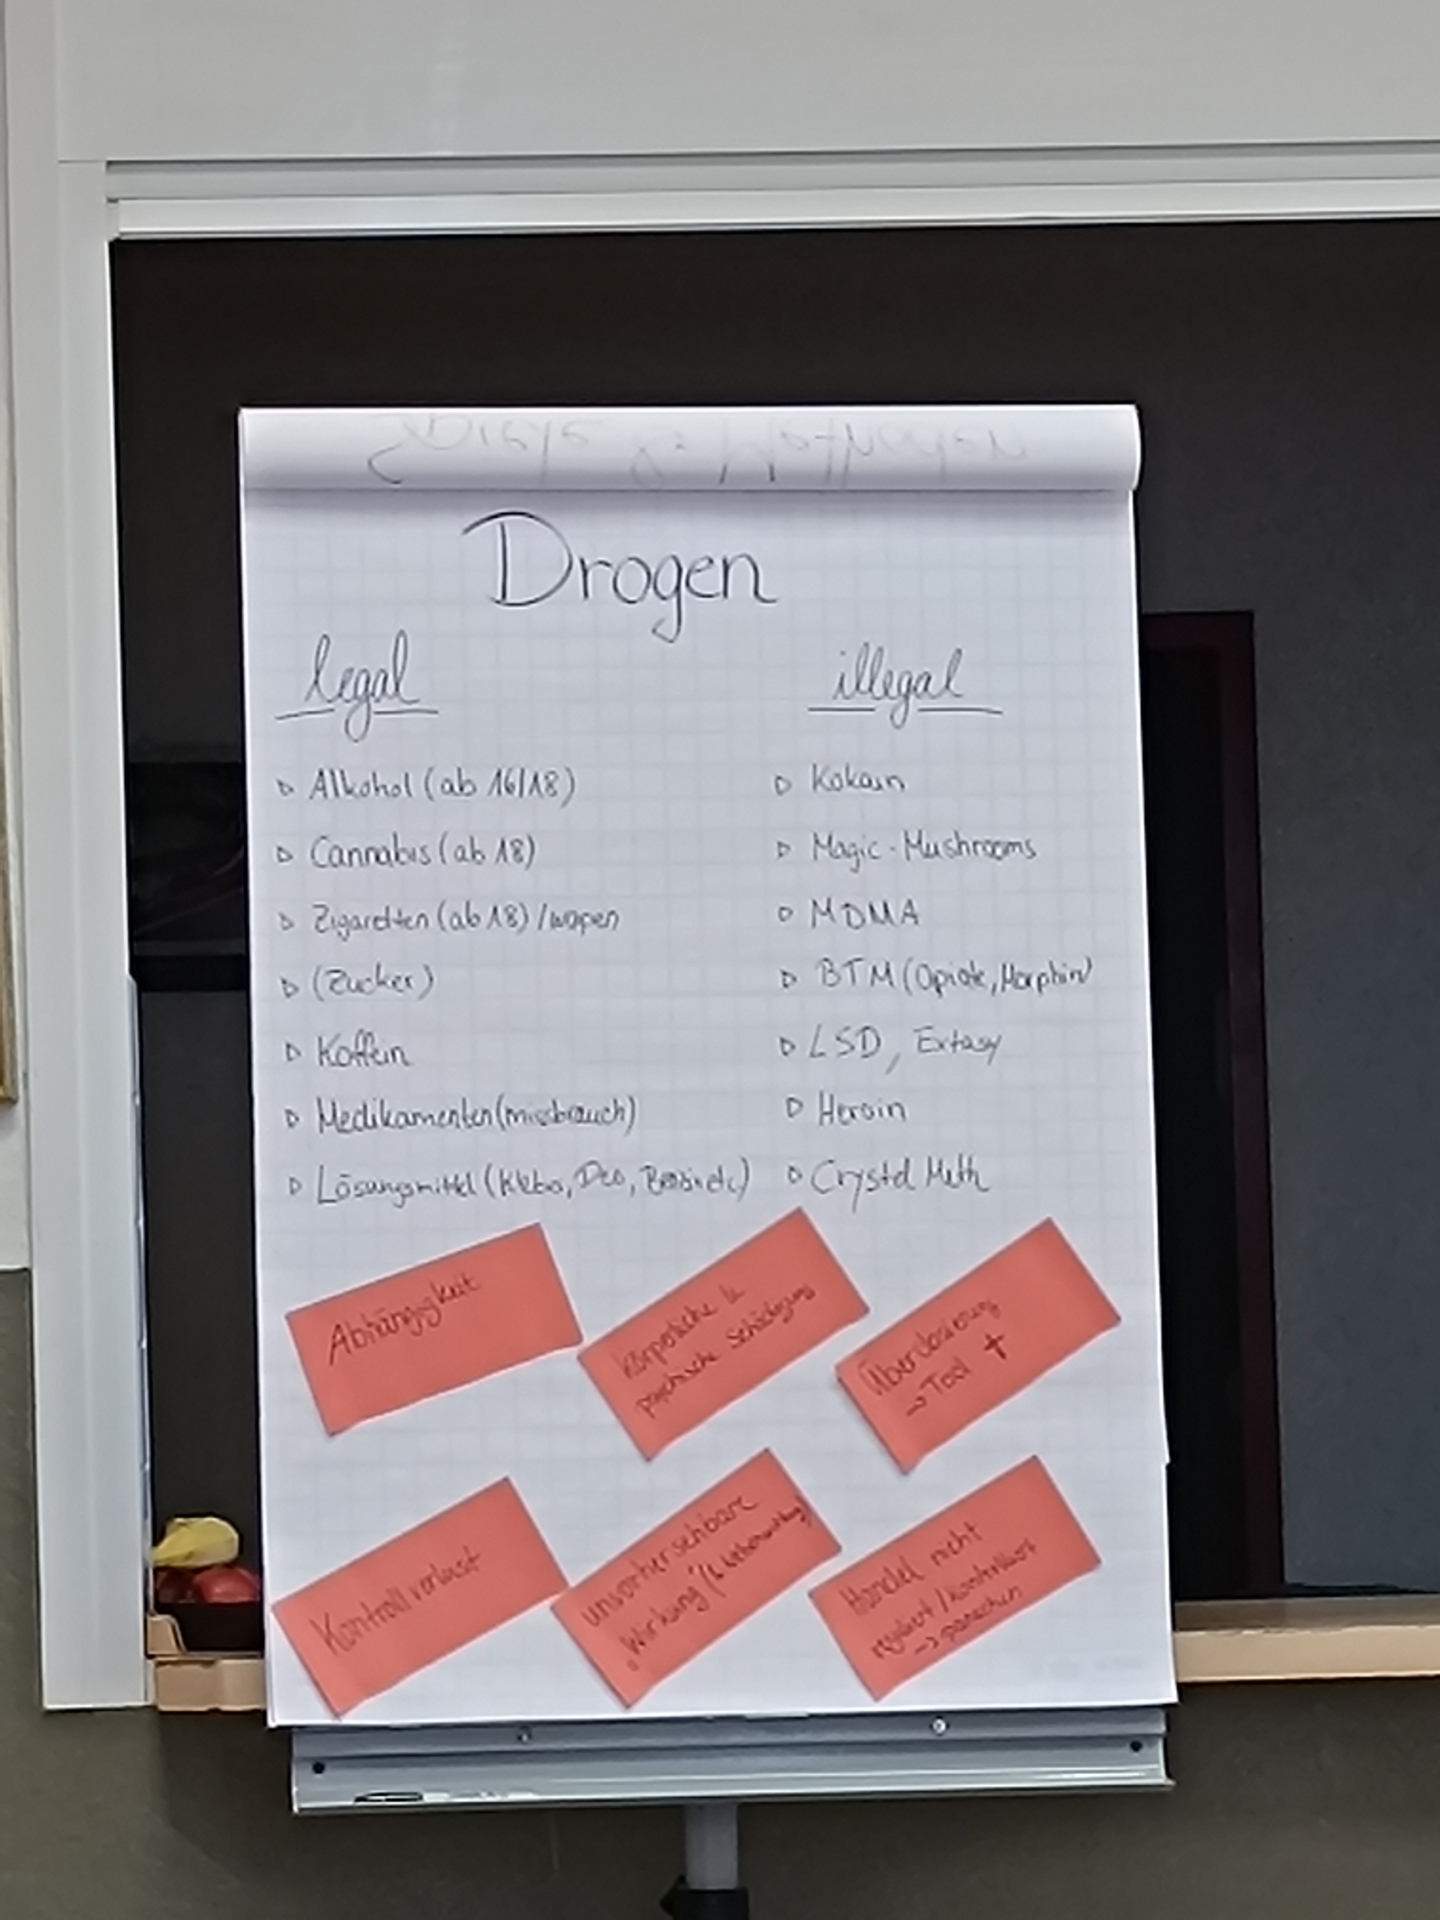 Drogen
legal
illegal
▷ Alkohol (ab 16/18)
▷ Cannabis (ab 18)
▷ Zigaretten (ab 18) / wapen
▷ (Zucker)
▷ Koffein
▷ Medikamenten (missbrauch)
▷ Lösungsmittel (Kleber, Deo, Benzin etc.)
▷ Kokain
▷ Magic-Mushrooms
▷ MDMA
▷ BTM (Opiate, Morphin)
▷ LSD, Extasy
▷ Heroin
▷ Crystal Meth
Abhängigkeit
körperliche &
psychische Schädigung
Überdosierung
→ Tod †
Kontrollverlust
unvorhersehbare
Wirkung
Handel nicht
→ panschen